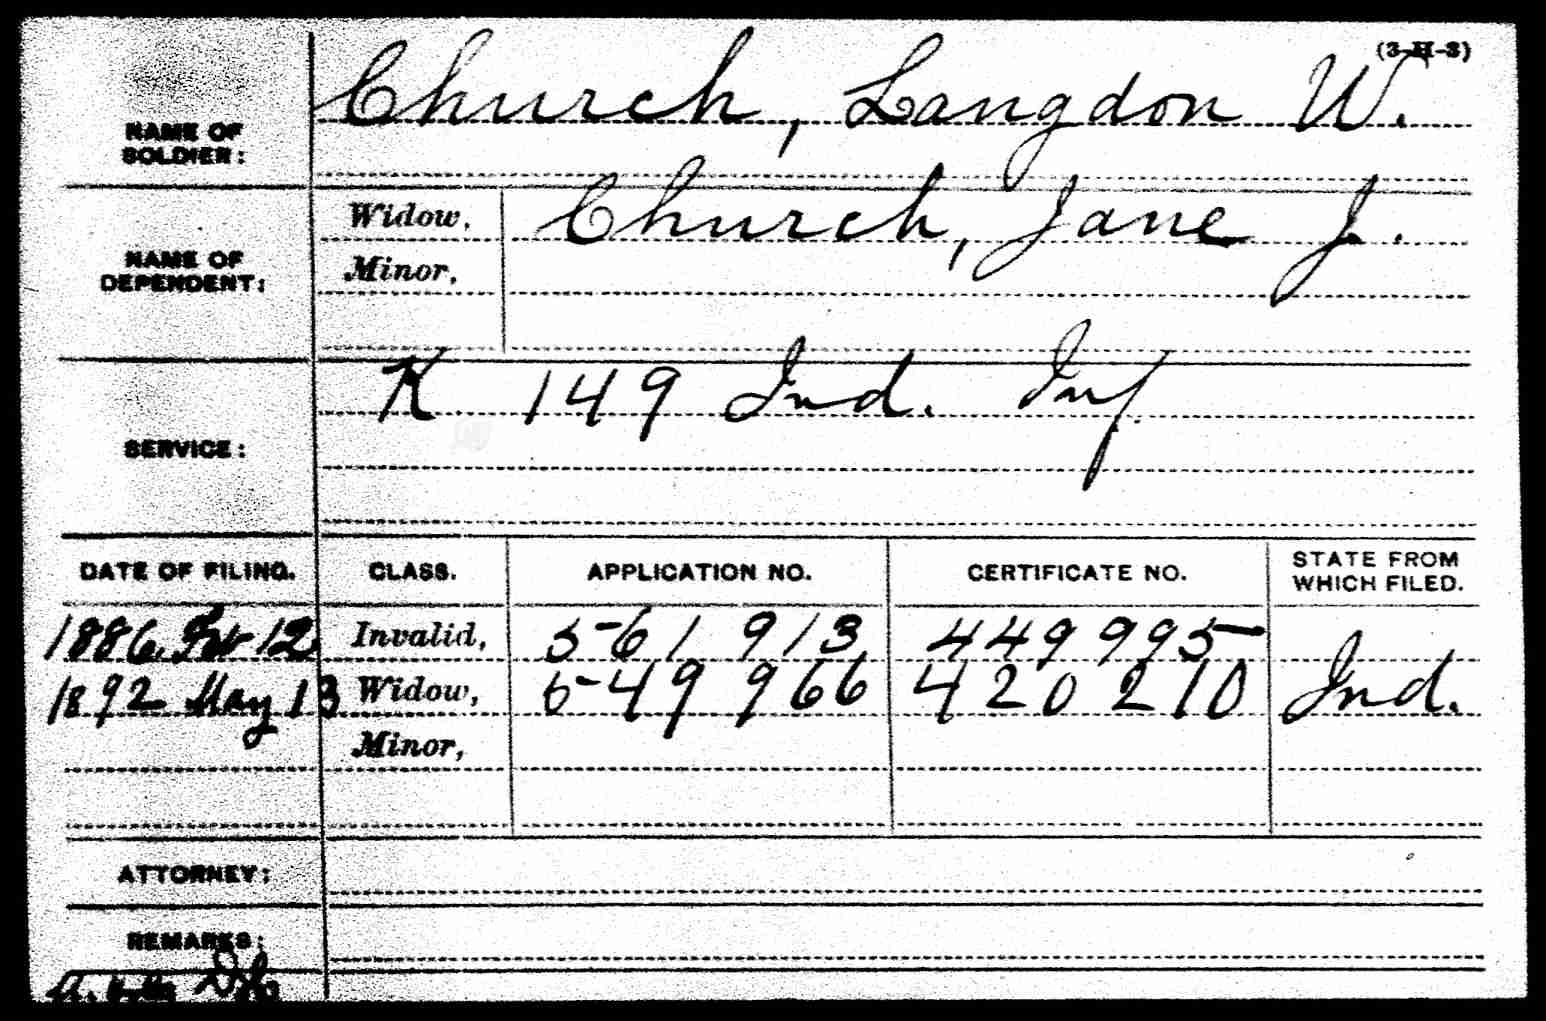 (3-H-3)
NAME OF SOLDIER: Church, Langdon W.
NAME OF DEPENDENT: Widow, Church, Jane J.
Minor,
SERVICE: K 149 Ind. Inf.
DATE OF FILING. CLASS. APPLICATION NO. CERTIFICATE NO. STATE FROM WHICH FILED.
1886 Feb 12 Invalid, 561 913 449 995
1892 May 13 Widow, 549 966 420 210 Ind.
Minor,
ATTORNEY:
REMARKS: